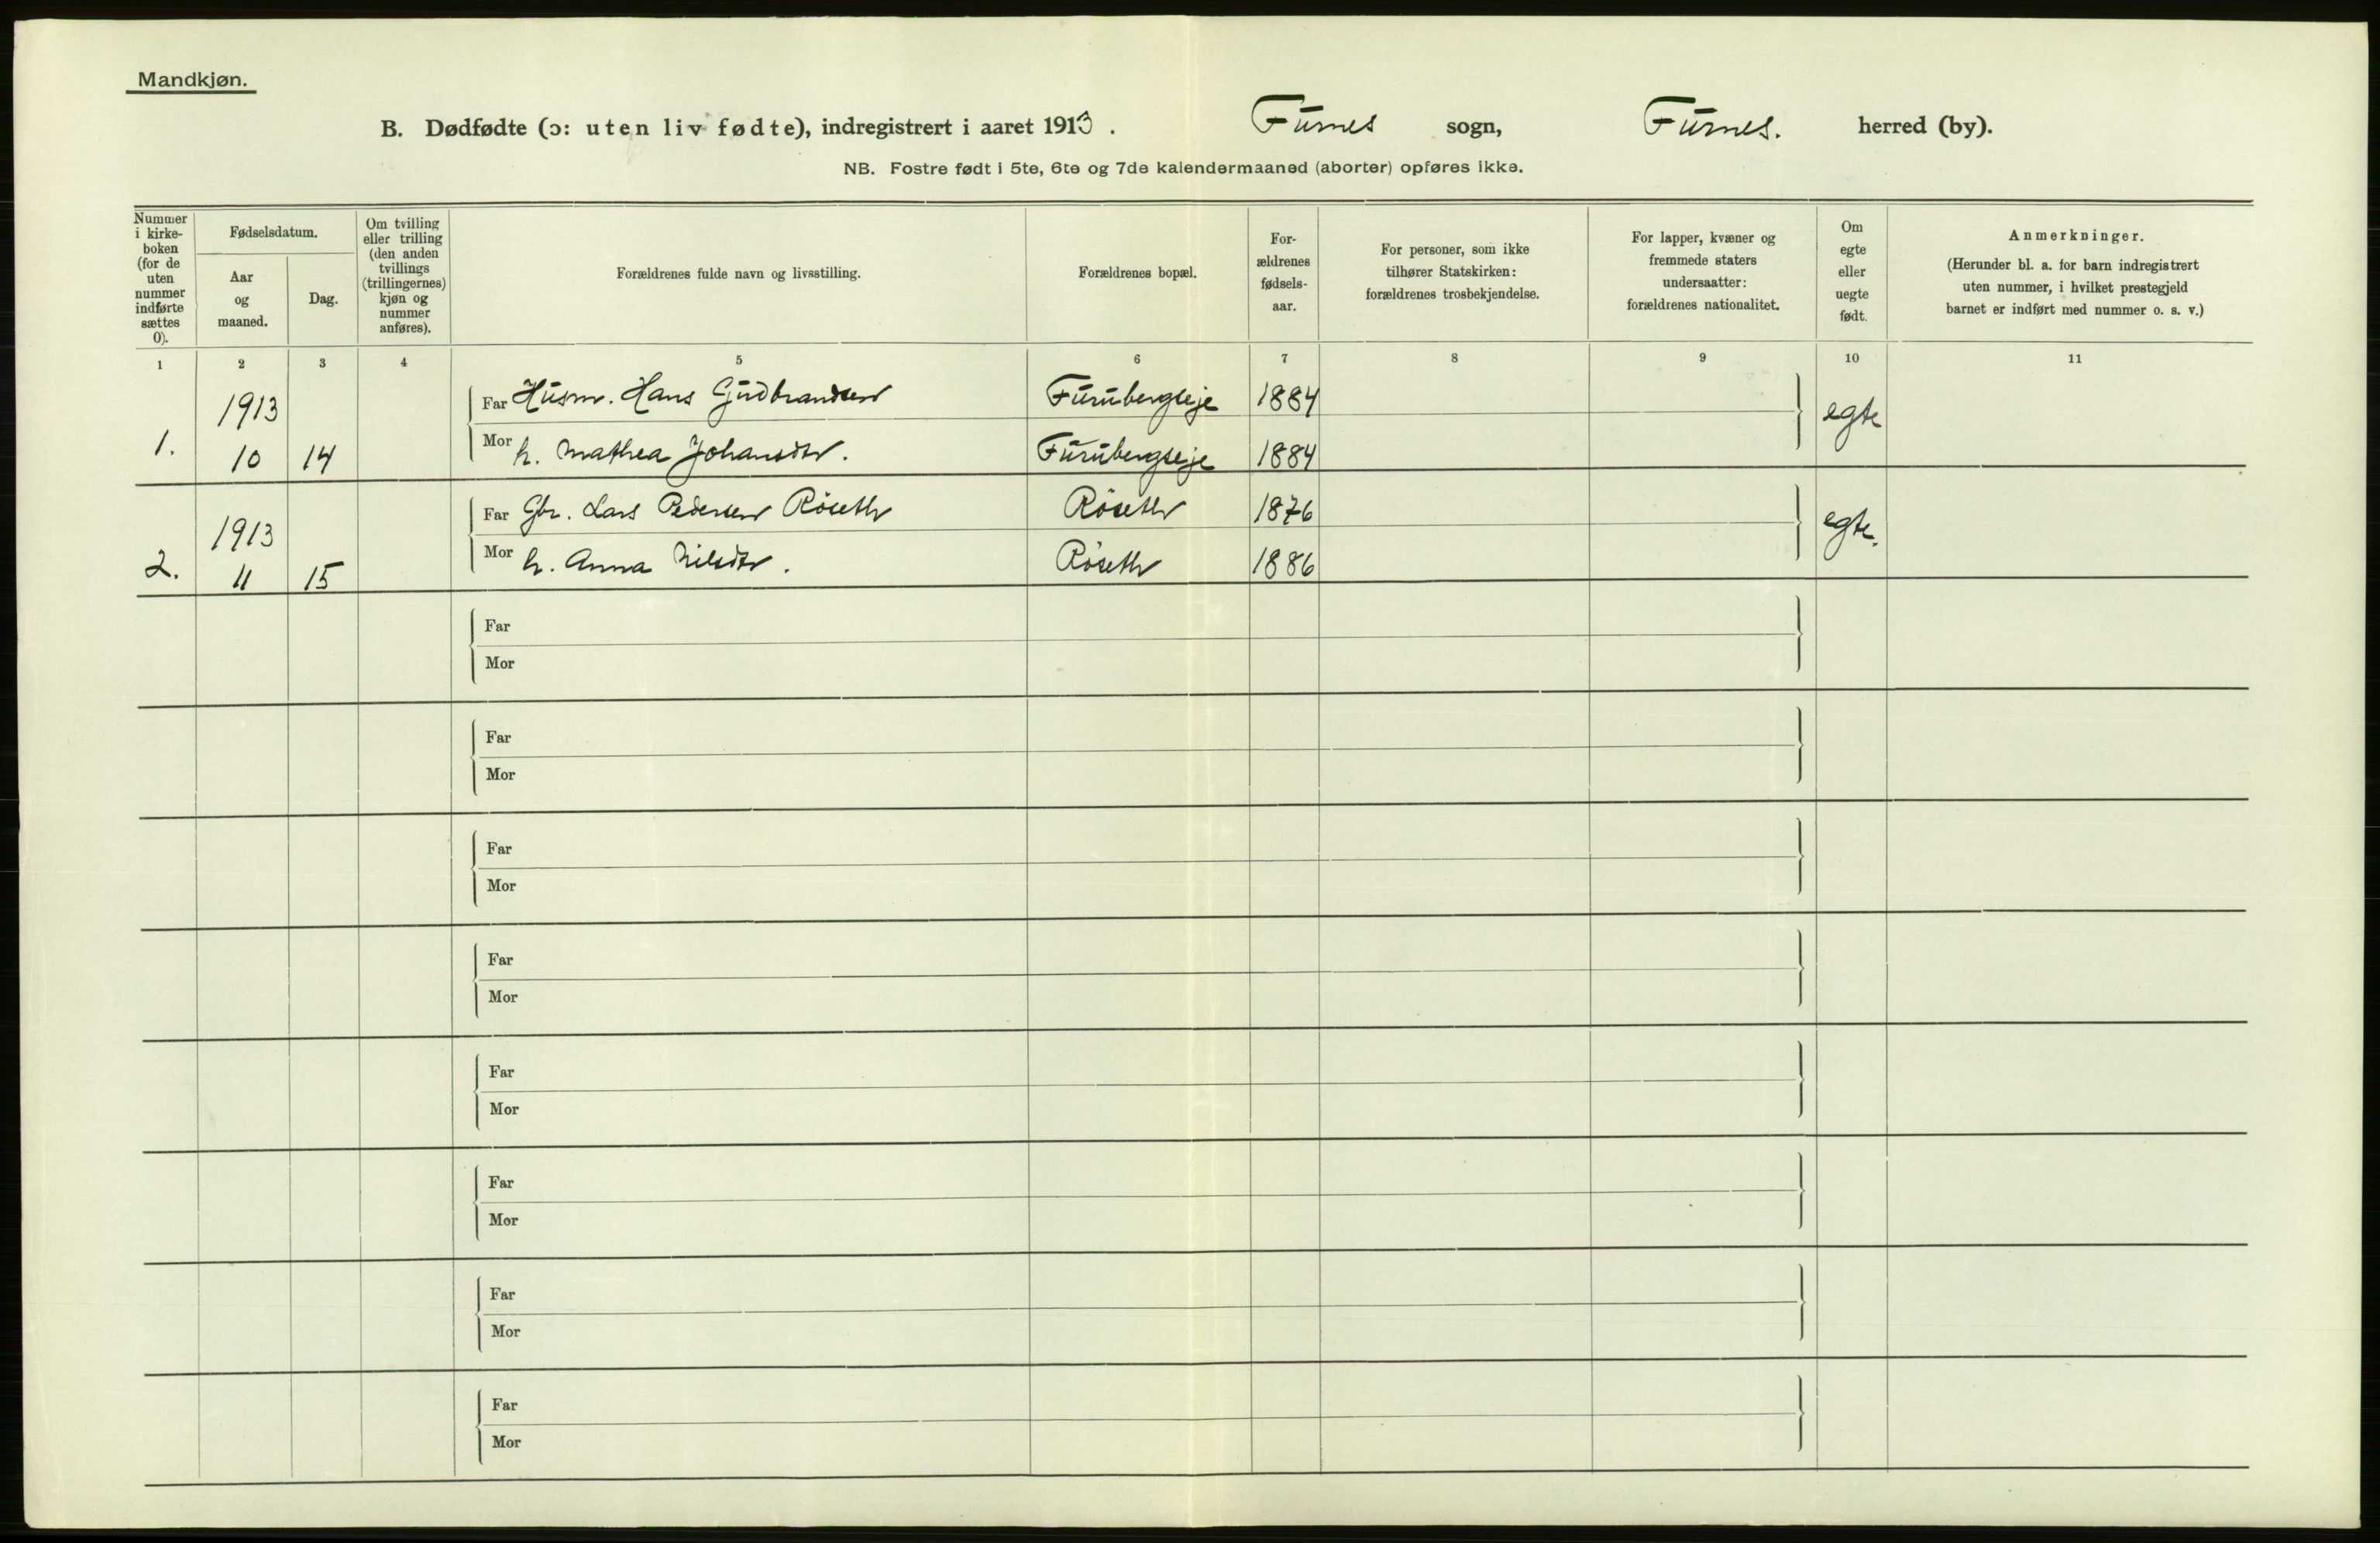 Mandkjøn.
B. Dødfødte (ɔ: uten liv fødte), indregistrert i aaret 1913. Furnes sogn, Furnes. herred (by).
NB. Fostre født i 5te, 6te og 7de kalendermaaned (aborter) opføres ikke.
Nummer i kirke- boken (for de uten nummer indførte sættes 0).
Fødselsdatum.
Aar og maaned.
Dag.
Om tvilling eller trilling (den anden tvillings (trillingernes) kjøn og nummer anføres).
Forældrenes fulde navn og livsstilling.
Forældrenes bopæl.
For- ældrenes fødsels- aar.
For personer, som ikke tilhører Statskirken: forældrenes trosbekjendelse.
For lapper, kvæner og fremmede staters undersaatter: forældrenes nationalitet.
Om egte eller uegte født.
Anmerkninger.
(Herunder bl. a. for barn indregistrert uten nummer, i hvilket prestegjeld barnet er indført med nummer o. s. v.)
1 2 3 4 5 6 7 8 9 10 11
1913 Far Husm. Hans Gudbrandsen Furubergseje 1884 egte
1. 10 14 Mor h. Mathea Johansdtr. Furubergseje 1884
1913 Far Gbr. Lars Pedersen Röseth Röseth 1876 egte.
2. 11 15 Mor h. Anna Nilsdtr. Röseth 1886
Far
Mor
Far
Mor
Far
Mor
Far
Mor
Far
Mor
Far
Mor
Far
Mor
Far
Mor